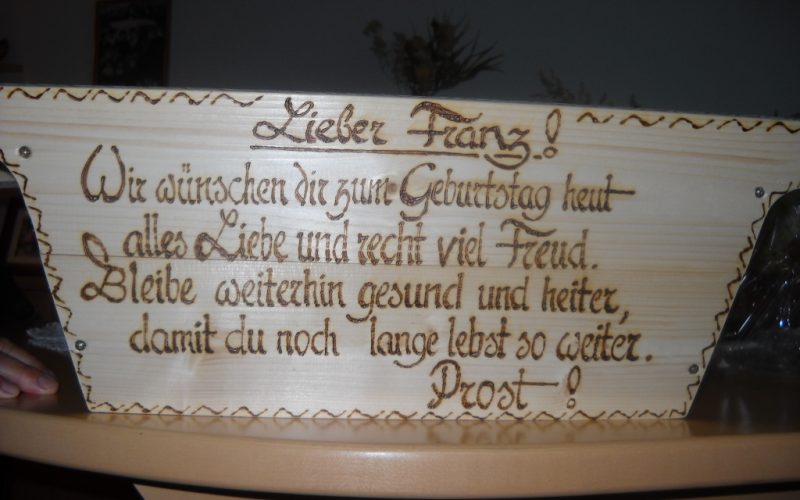 Lieber Franz!
Wir wünschen dir zum Geburtstag heut
alles Liebe und recht viel Freud.
Bleibe weiterhin gesund und heiter,
damit du noch lange lebst so weiter.
Prost!